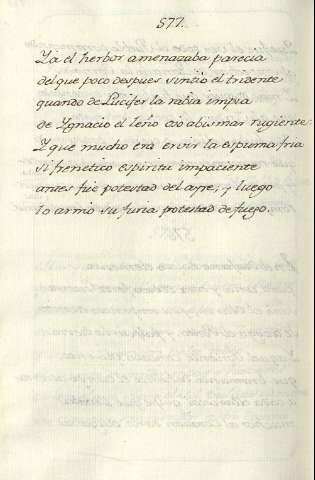 577.
Ya el herbor amenazaba parecia
del que poco despues sintio el tridente
quando de Lucifer la rabia impia
de Ygnacio el leño vio abismar rugiente.
Y que mucho era ervir la espuma fria
si frenetico espiritu impaciente
antes fue potestad del ayre, y luego
lo armò su furia potestad de fuego.